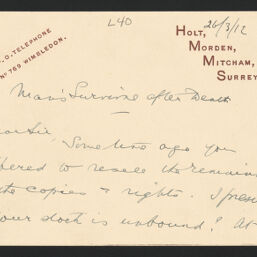 L40
26/3/12
.O. TELEPHONE
No 769 WIMBLEDON.
HOLT,
MORDEN,
MITCHAM,
SURREY
Man's Survival after Death
Sir, Some time ago you
to resell the remain
the copies & rights. I pres
your stock is unbound? At